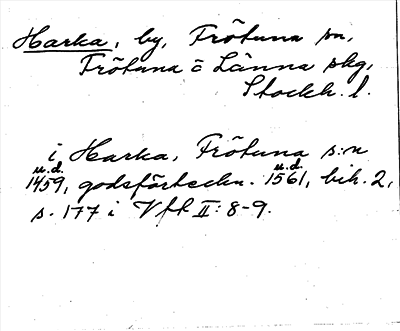 Harka, by, Frötuna sn,
Frötuna o Länna skg,
Stockh. l.
i Harka, Frötuna s:n
u.d. u.d.
1459, godsförteckn. 1561, bih. 2,
s. 177 i Vfl II: 8-9.